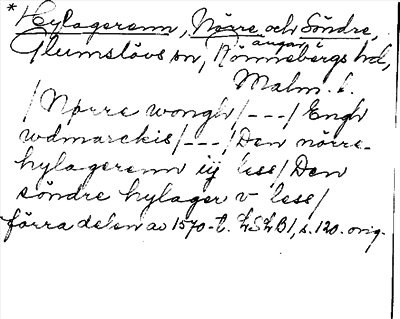 * Hylagerenn, Nörre och Söndre,
ängar i
Glumslövs sn, Rönnebergs hd,
Malm. l.
/Nørre wongh/---/Engh
wdmarckis/---/Den nörre-
hylagerenn iij less/Den
söndre hylager v less/
förra delen av 1570-t. LSLB1, s. 120. orig.